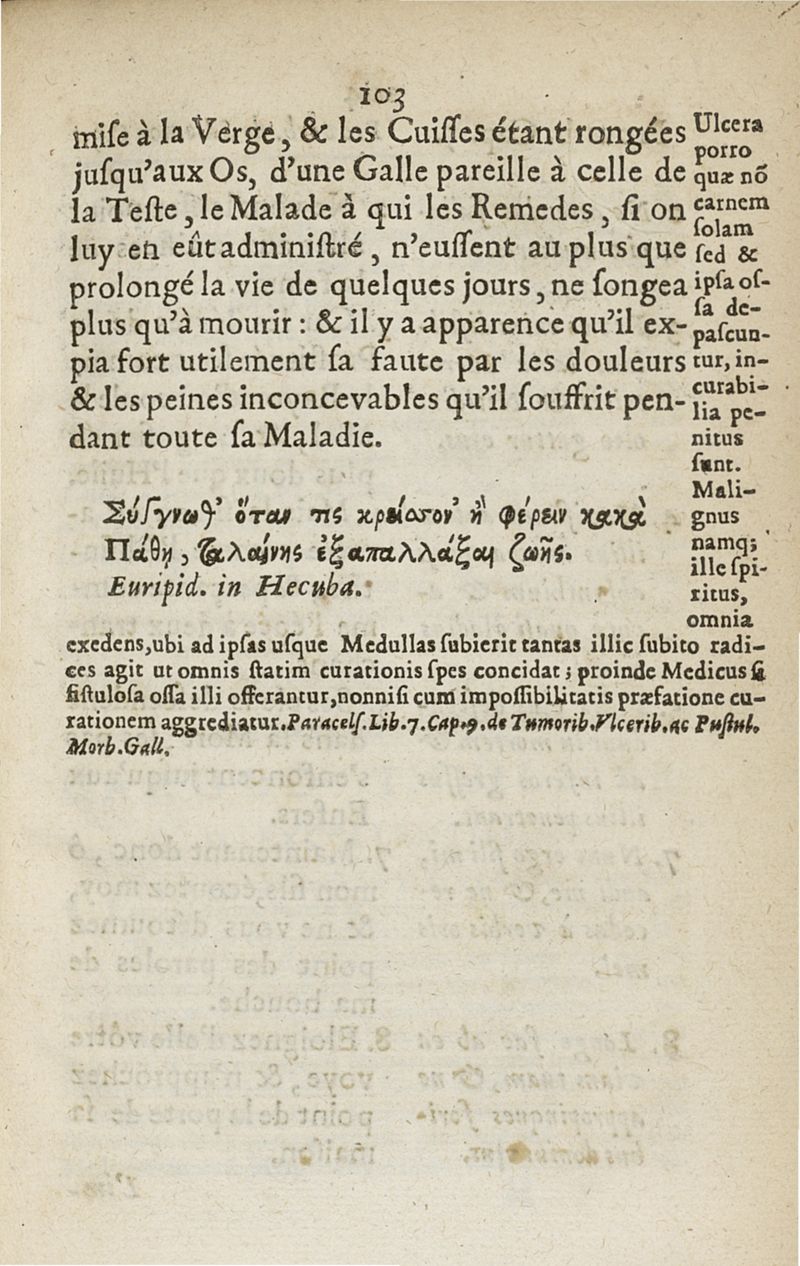 103
mise à la Verge, & les Cuisses étant rongées
jusqu'aux Os, d'une Galle pareille à celle de
la Teste, le Malade à qui les Remedes, si on
luy en eût administré, n'eussent au plus que
prolongé la vie de quelques jours, ne songea
plus qu'à mourir : & il y a apparence qu'il ex-
pia fort utilement sa faute par les douleurs
& les peines inconcevables qu'il souffrit pen-
dant toute sa Maladie.
Σύγγνωθ' ὅταν τις κρείσσον' ἢ φέρειν κακὰ
Πάθῃ, ταλαίνης ἐξαπαλλάξαι ζωῆς.
Euripid. in Hecuba.
Ulcera
porro
quæ nõ
carnem
solam
sed &
ipsa os-
sa de-
pascun-
tur, in-
curabi-
lia pe-
nitus
sunt.
Mali-
gnus
namq;
ille spi-
ritus,
omnia
exedens, ubi ad ipsas usque Medullas subierit tantas illic subito radi-
ces agit ut omnis statim curationis spes concidat; proinde Medicus si
fistulosa ossa illi offerantur, nonnisi cum impossibilitatis præfatione cu-
rationem aggrediatur. Paracels. Lib. 7. Cap. 9. de Tumorib. Vlcerib. ac Pustul.
Morb. Gall.